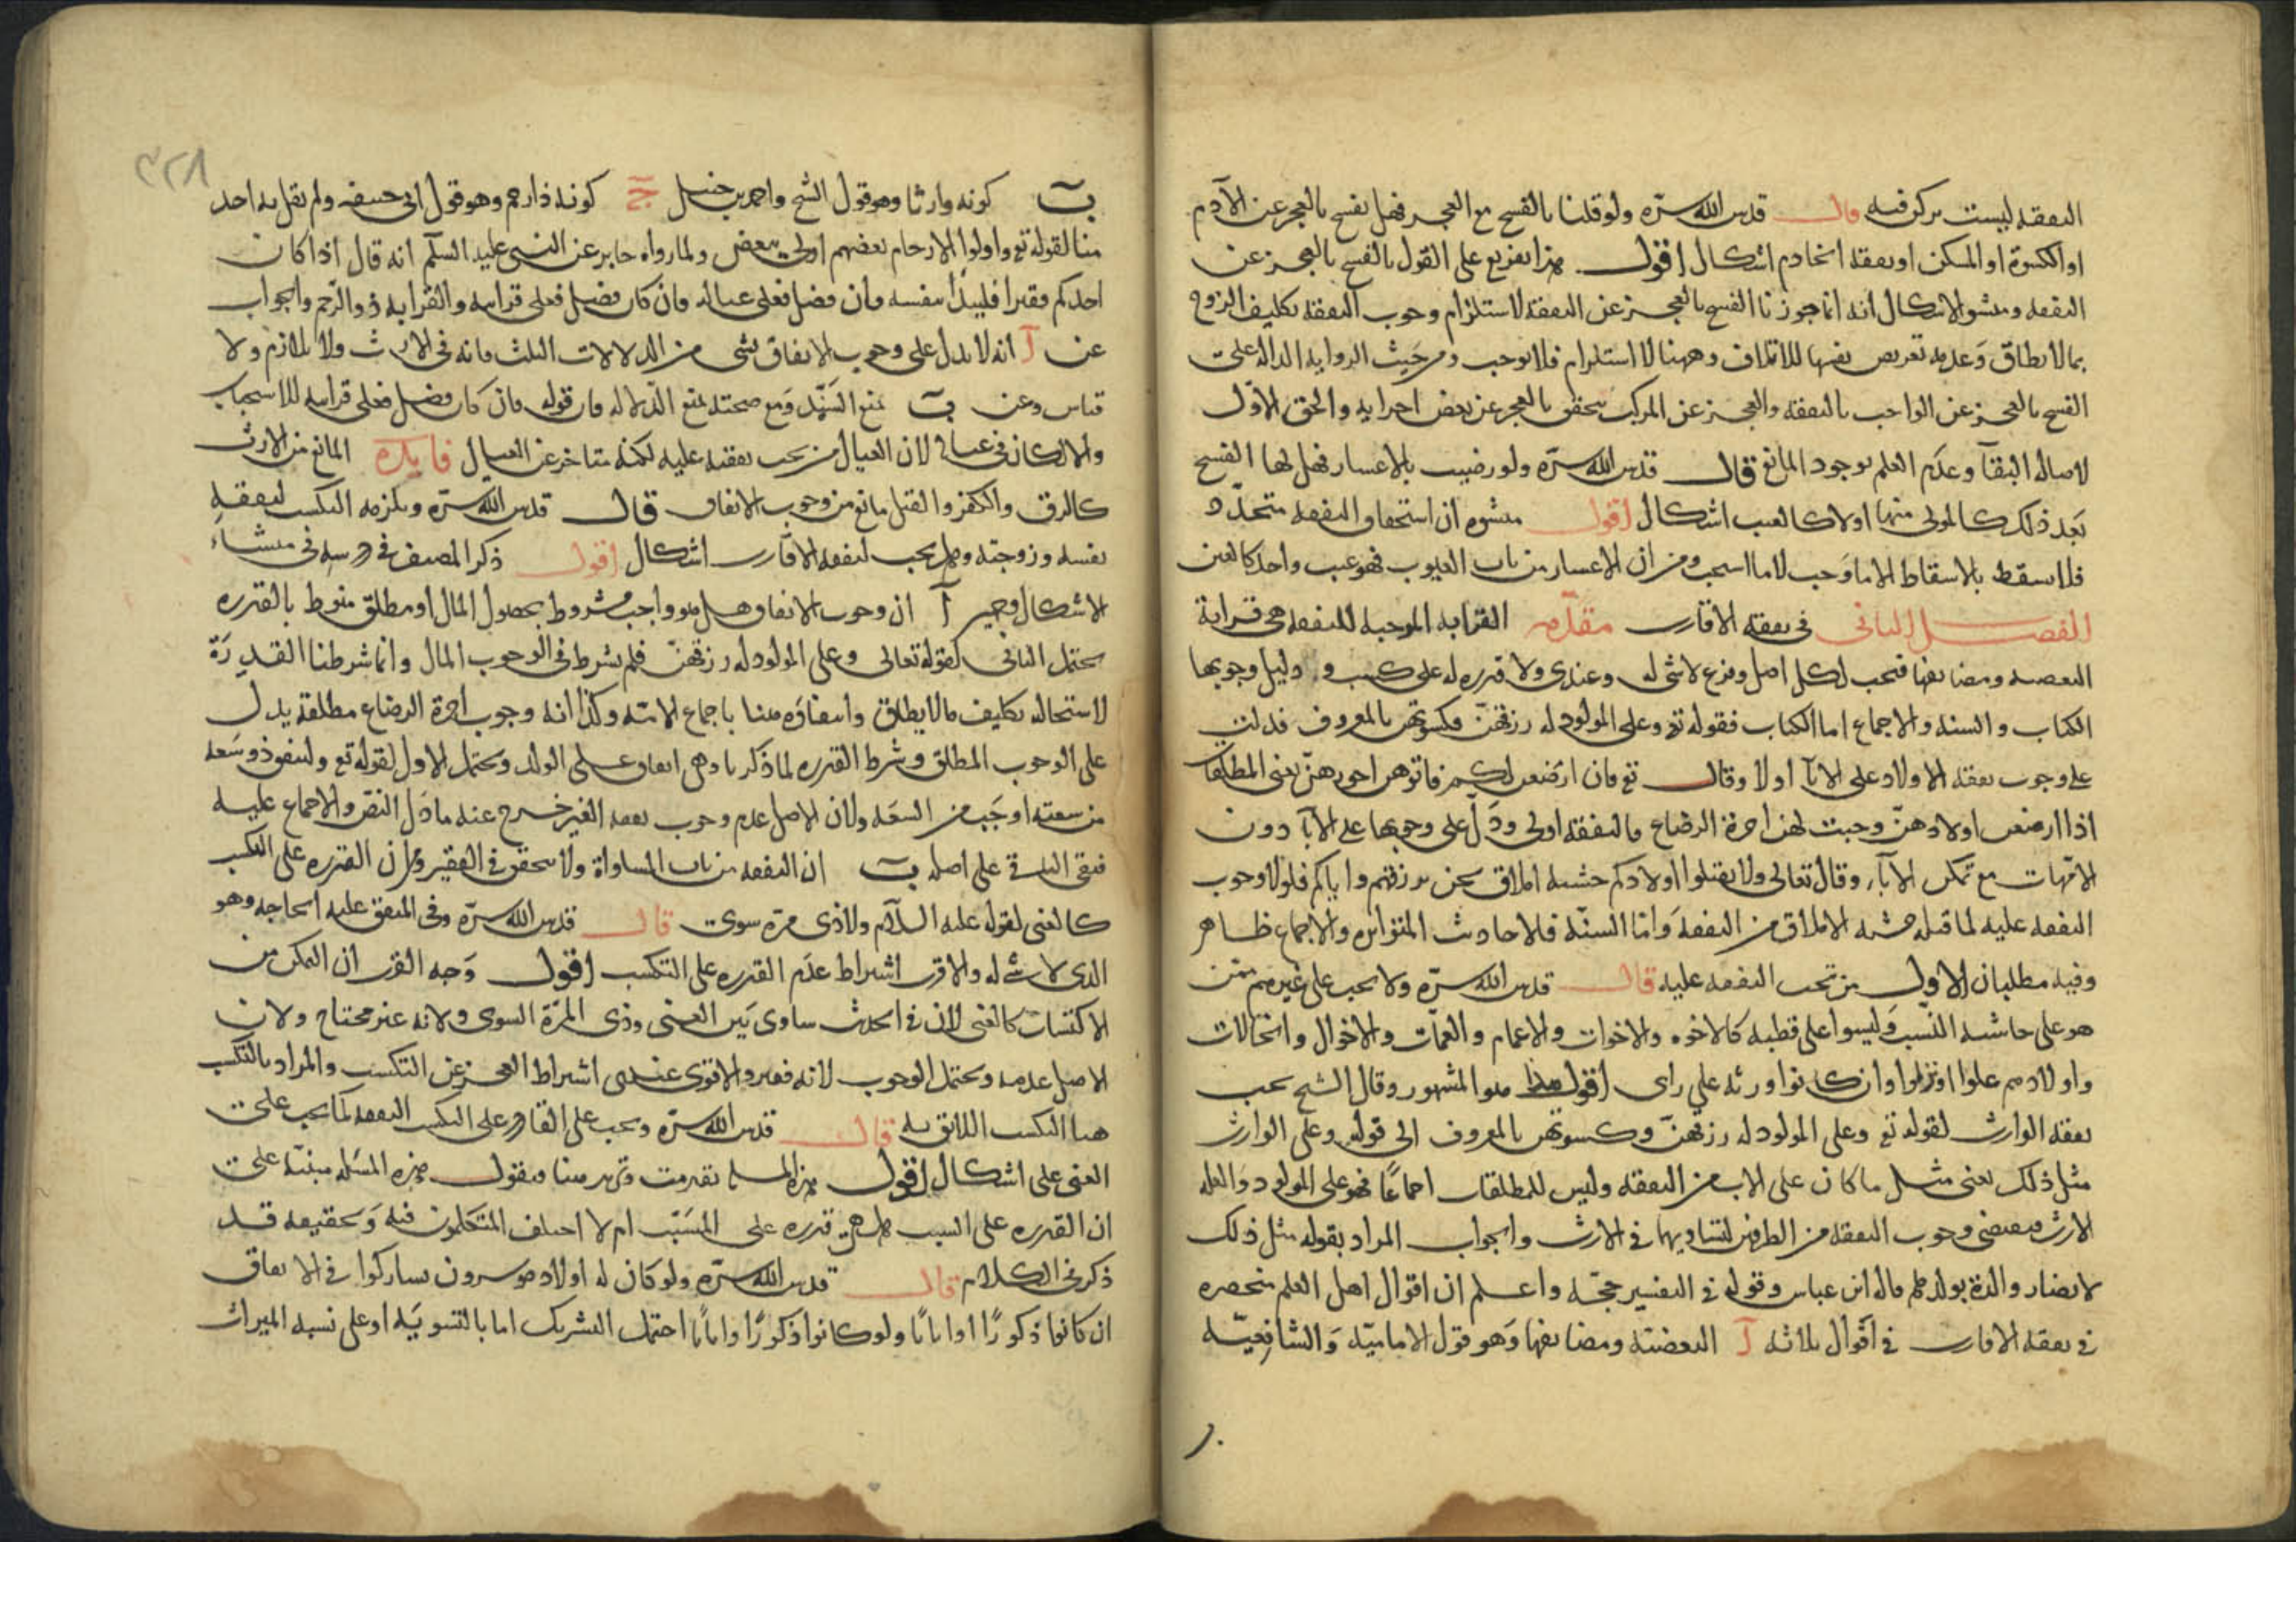 النفقة ليست بركن فيه قال قدس الله سره ولو قلنا بالفسخ مع العجز فهل يفسخ بالعجز عن الآدم
او الكسوة او المسكن او نفقة الخادم اشكال اقول هذا تفريع على القول بالفسخ بالعجز عن
النفقة ومنشؤ الاشكال انه انما جوزنا الفسخ بالعجز عن النفقة لاستلزام وجوب النفقة تكليف الزوج
بما لا يطاق وعدمه تعريض نفسها للاتلاف وههنا لا استلزام فلا يوجب ومن حيث الرواية الدالة على
الفسخ بالعجز عن الواجب بالنفقة والعجز عن المركب يتحقق بالعجز عن بعض اجزايه والحق الاول
لاصالة البقآ وعدم العلم بوجود المانع قال قدس الله سره ولو رضيت بالاعسار فهل لها الفسخ
بعد ذلك كالمولى منها او لا كالعيب اشكال اقول منشوه ان استحقاق النفقة متجدد
فلا يسقط بالاسقاط الا ما وجب لا ما استجب ومن ان الاعسار من باب العيوب فهو عيب واحد كالعنن
الفصل الثاني في نفقة الاقارب مقدمة القرابة الموجبة للنفقة هي قرابة
البعضية ومضايفها فتجب لكل اصل وفرع لا شي له وعندي ولا قدرة له على كسب و دليل وجوبها
الكتاب والسنة والاجماع اما الكتاب فقوله تع وعلى المولود له رزقهن وكسوتهن بالمعروف فدلت
على وجوب نفقة الاولاد على الابآ اولا وقال تع فان ارضعن لكم فاتوهن اجورهن يعني المطلقات
اذا ارضعن اولادهن وجبت لهن اجرة الرضاع فالنفقة اولى ودل على وجوبها على الابآ دون
الامهات مع تمكن الابآء وقال تعالى ولا تقتلوا اولادكم خشية املاق نحن نرزقهم واياكم فلولا وجوب
النفقة عليه لما قتله خشية الاملاق من النفقة واما السنة فالاحاديث المتواترة والاجماع ظاهر
وفيه مطلبان الاول من تجب النفقة عليه قال قدس الله سره ولا يجب على غيرهم ممن
هو على حاشية النسب وليسوا على قطبه كالاخوه والاخوات والاعمام والعمات والاخوال والخالات
واولادهم علوا او نزلوا وان كانوا ورثه على راى اقول هذا هو المشهور وقال الشيخ يجب
نفقة الوارث لقوله تع وعلى المولود له رزقهن وكسوتهن بالمعروف الى قوله وعلى الوارث
مثل ذلك يعني مثل ما كان على الاب من النفقة وليس للمطلقات اجماعا فهو على المولود والعلة
الارث فيقتضى وجوب النفقة من الطرفين لتساويهما في الارث والجواب المراد بقوله مثل ذلك
لا تضار والدة بولدها قاله ابن عباس وقوله في التفسير حجة واعلم ان اقوال اهل العلم منحصره
في نفقة الاقارب في اقوال ثلاثة آ البعضية ومضايفها وهو قول الامامية والشافعية
٣٢٨
ب كونه وارثا وهو قول الشيخ واحمد بن حنبل ج كونه ذا رحم وهو قول ابي حنيفه ولم يقل به احد
منا لقوله تع واولوا الارحام بعضهم اولى ببعض ولما رواه جابر عن النبي عليه السلم انه قال اذا كان
احدكم فقيرا فليبدأ بنفسه فان فضل فعلى عياله فان كان فضل فعلى قرابته والقرابة ذو الرحم والجواب
عن آ انه لا يدل على وجوب الانفاق بشي من الدلالات الثلث فانه في الارث ولا تلازم ولا
قياس وعن ب نمنع السند ومع صحته نمنع الدلالة فان قوله فان كان فضل فعلى قرابته للاستحباب
والا لكان في عياله لان العيال من يجب نفقته عليه لكنه متاخر عن العيال فايدة المانع من الارث
كالرق والكفر والقتل مانع من وجوب الانفاق قال قدس الله سره ويلزمه التكسب لنفقة
نفسه وزوجته وهل يجب لنفقة الاقارب اشكال اقول ذكر المصنف في درسه في منشاء
الاشكال وجهين آ ان وجوب الانفاق هل هو واجب مشروط بحصول المال او مطلق منوط بالقدره
يحتمل الثاني لقوله تعالى وعلى المولود له رزقهن فلم يشرط في الوجوب المال وانما شرطنا القدرة
لاستحالة تكليف ما لا يطاق وانتفاؤه منا باجماع الامة وكذا انه وجوب اجرة الرضاع مطلقة يدل
على الوجوب المطلق وشرط القدرة لما ذكرنا وهي انفاق على الولد ويحتمل الاول لقوله تع ولينفق ذو سعة
من سعته اوجب من السعة ولان الاصل عدم وجوب نفقة الغير خرج عنه ما دل النص والاجماع عليه
فبقى الباقي على اصله ب ان النفقة من باب المساواة ولا يتحقق في الفقير ومن ان القدرة على التكسب
كالغنى لقوله عليه السلام ولا ذي مرة سوى قال قدس الله سره وفي المنفق عليه الحاجة وهو
الذي لا شئ له والاقرب اشتراط عدم القدرة على التكسب اقول وجه القرب ان التمكن من
الاكتساب كالغنى لان في الحديث ساوى بين الغنى وذي المرة السوى ولانه غير محتاج ولان
الاصل عدمه ويحتمل الوجوب لانه فقير والاقوى عندي اشتراط العجز عن التكسب والمراد بالتكسب
هنا التكسب اللائق به قال قدس الله سره ويجب على القادر على التكسب النفقة كما يجب على
الغنى على اشكال اقول هذه المسلة تقدمت ونزيد هنا فنقول هذه المسئلة مبنية على
ان القدرة على السبب هل هي قدرة على المسبب ام لا اختلف المتكلمون فيه وتحقيقه قد
ذكر في الكلام قال قدس الله سره ولو كان له اولاد موسرون تشاركوا في الانفاق
ان كانوا ذكورا او اناثا ولو كانوا ذكورا واناثا احتمل التشريك اما بالتسوية او على نسبة الميراث